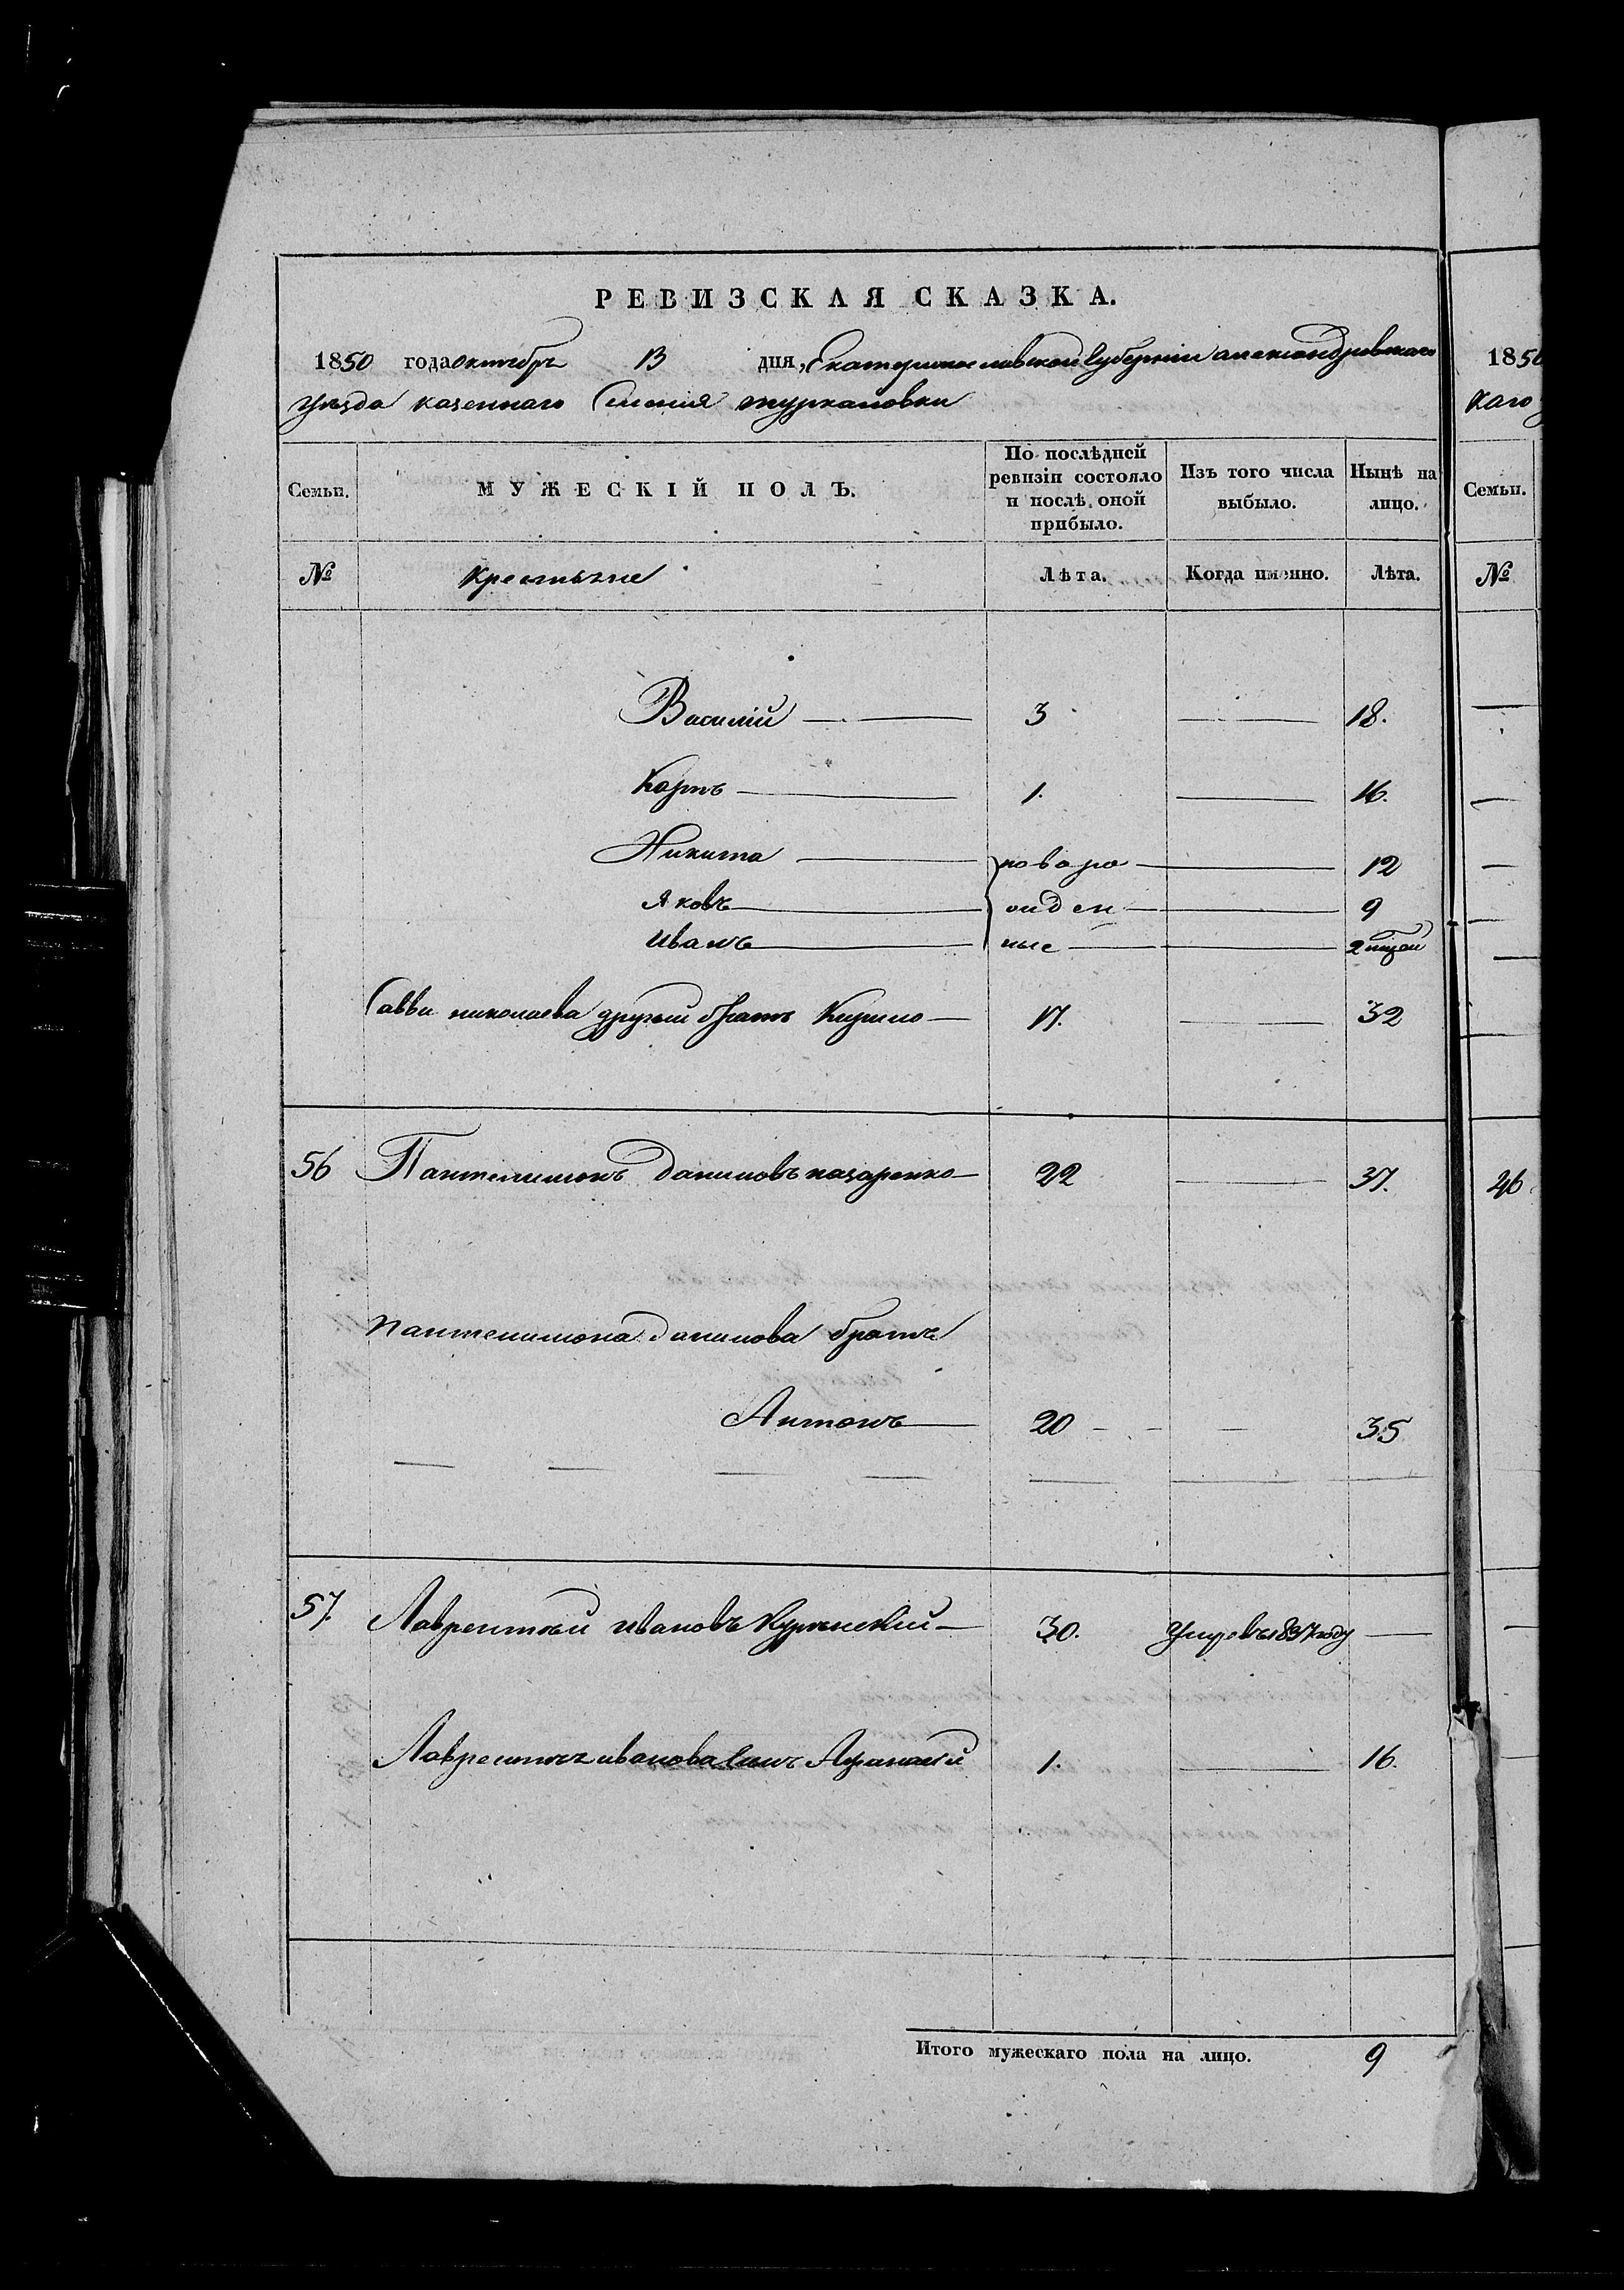 РЕВИЗСКАЯ СКАЗКА.
1850 года октября 13 дня, Екатеринославской Губерніи александровскаго
уѣзда казеннаго Селенія
Семьи. МУЖЕСКІЙ ПОЛЪ. По послѣдней ревизіи состояло и послѣ оной прибыло. Изъ того числа выбыло. Нынѣ на лицо.
№ крестьяне Лѣта. Когда именно. Лѣта.
Василій 3 18.
Карпъ 1. 16.
Никита новоро 12
Яковъ жден 9
Иванъ ные
Саввы николаева другой братъ Кирило 17. 32
56 Пантелимонъ даниловъ назаренко 22 37.
Пантелимона данилова братъ
Антонъ 20 35
57. Лаврентій ивановъ 30. умре въ 1837 году
Лаврентія иванова сынъ Афанасій 1. 16.
Итого мужескаго пола на лицо. 9
1850
каго
Семьи.
№
46